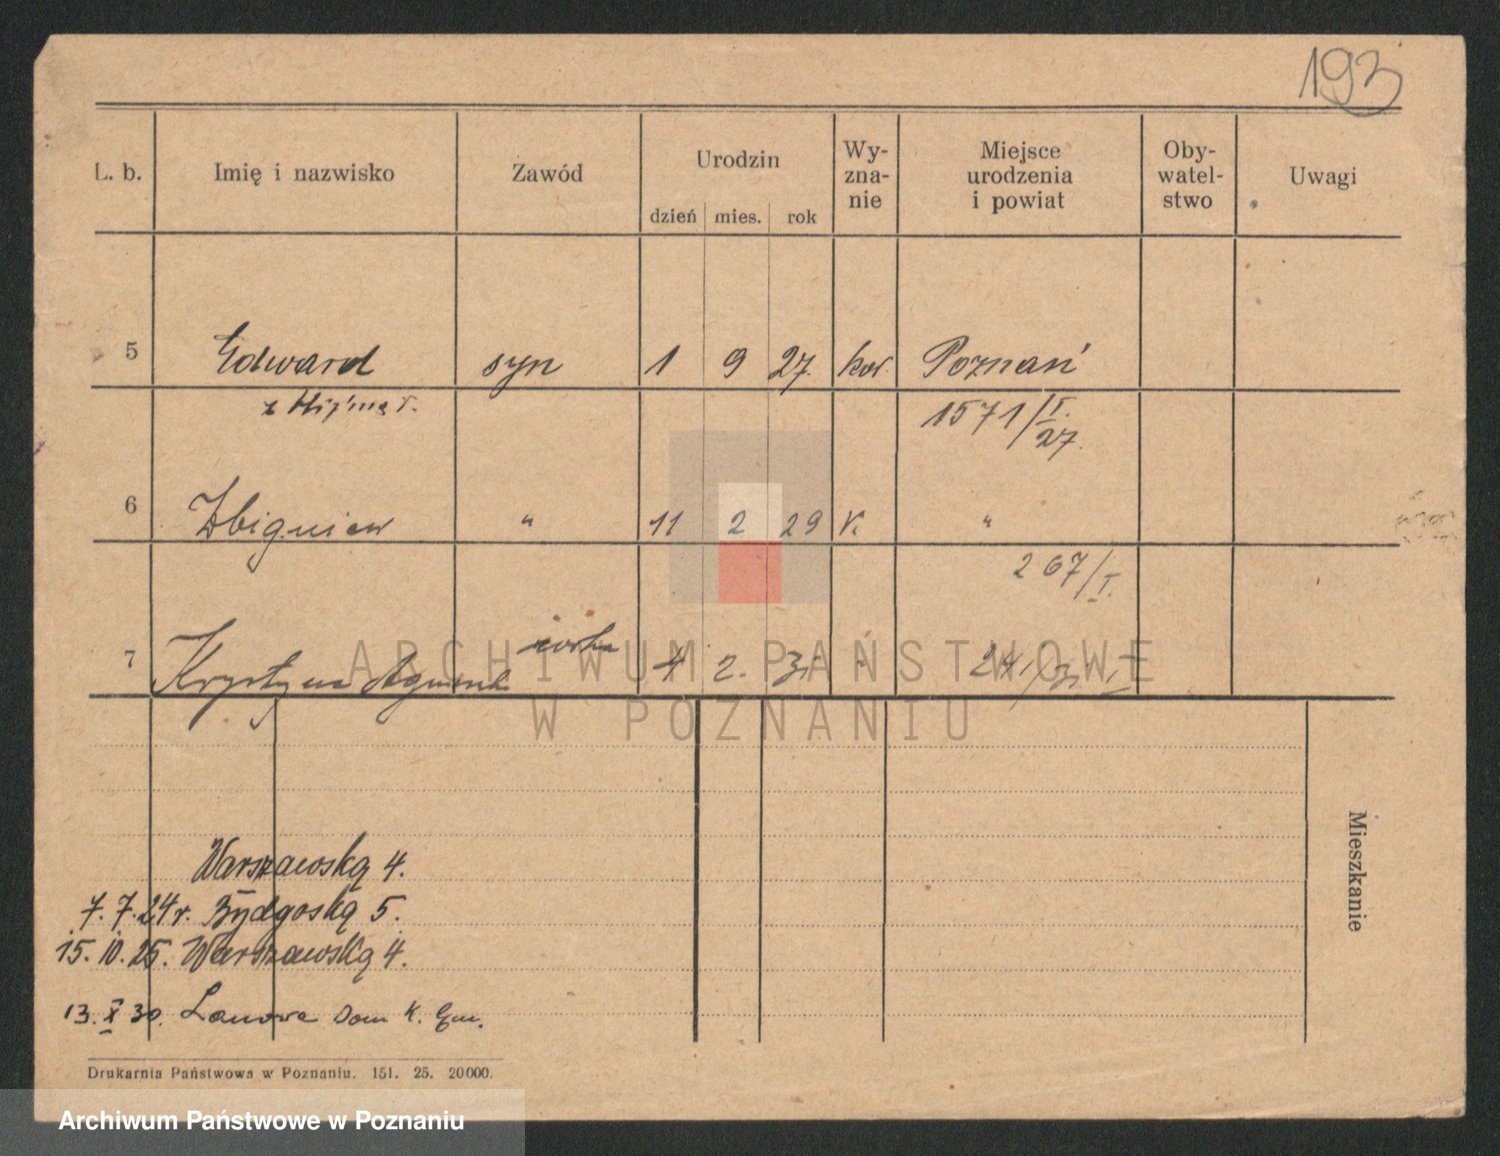 193
L. b. Imię i nazwisko Zawód Urodzin dzień mies. rok Wy-zna-nie Miejsce urodzenia i powiat Oby-watel-stwo Uwagi
5 Edward syn 1 9 27. kat. Poznań
1571/I.
27.
6 Zbigniew " 11 2 29 K. "
267/I.
7 Krystyna córka 4 2. 31 " 241/31 I
ARCHIWUM PAŃSTWOWE
W POZNANIU
Mieszkanie
Warszawską 4.
7. 7. 24 r. Bydgoską 5.
15. 10. 25. Warszawską 4.
13. X 30. Lanowa Dom K.
Drukarnia Państwowa w Poznaniu. 151. 25. 20000.
Archiwum Państwowe w Poznaniu